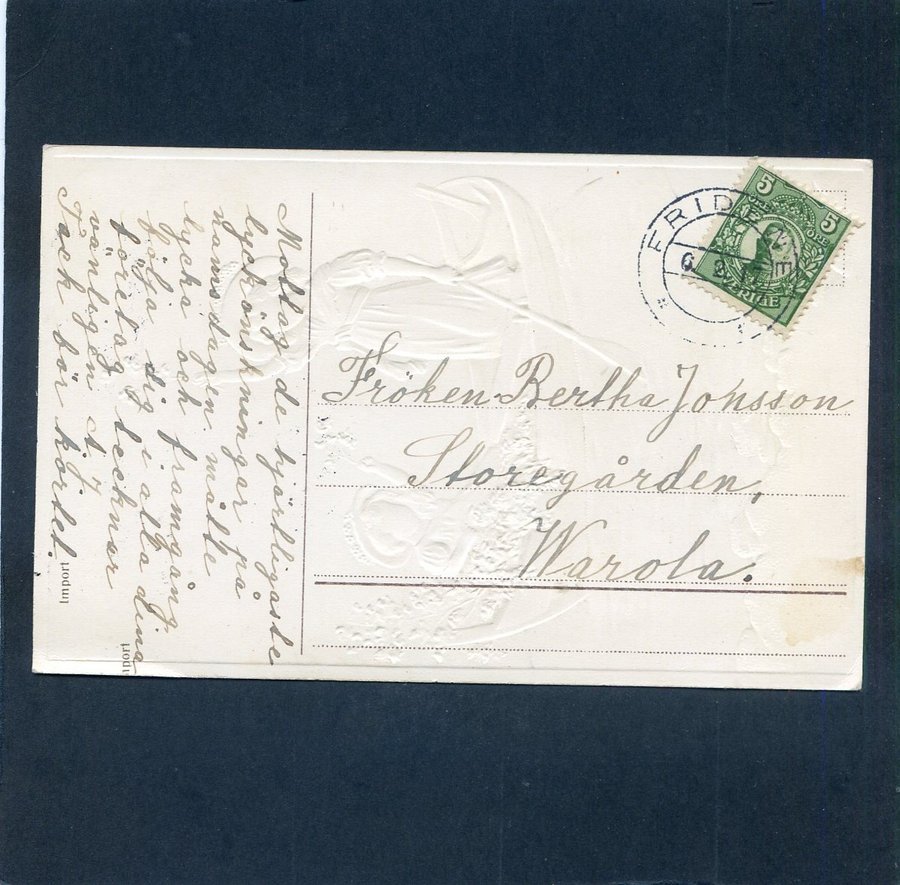 Mottag de hjärtligaste
lyckönskningar på
namnsdagen, måtte
lycka och framgång
följa dig i alla dina
företag tecknar
vänligen A. J.
Tack för kortet.
Fröken Bertha Jonsson
Storegården,
Warola.
FRID
6. 2.
5 5
ÖRE ÖRE
SVERIGE
Import
mport